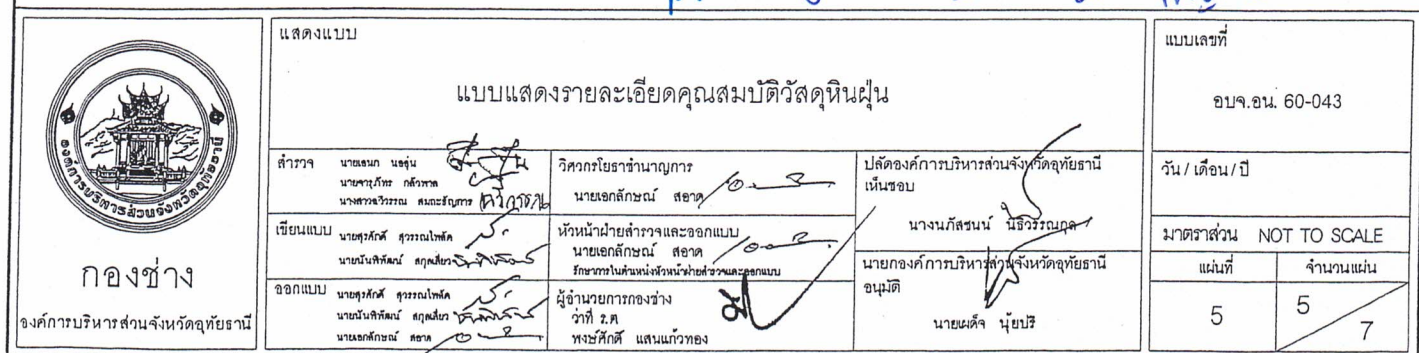 องค์การบริหารส่วนจังหวัดอุทัยธานี
กองช่าง
องค์การบริหารส่วนจังหวัดอุทัยธานี
แสดงแบบ
แบบแสดงรายละเอียดคุณสมบัติวัสดุหินฝุ่น
สำรวจ นายเอนก นอจุ่น
นายจารุภัทร กล้วพาล
นางสาวฉวีวรรณ สมถะธัญการ
เขียนแบบ นายสุรศักดิ์ สุวรรณไพฑัค
นายนันทิพัฒน์ สกุลเสี่ยว
ออกแบบ นายสุรศักดิ์ สุวรรณไพฑัค
นายนันทิพัฒน์ สกุลเสี่ยว
นายเอกลักษณ์ สอาด
วิศวกรโยธาชำนาญการ
นายเอกลักษณ์ สอาด
หัวหน้าฝ่ายสำรวจและออกแบบ
นายเอกลักษณ์ สอาด
รักษาการในตำแหน่งหัวหน้าฝ่ายสำรวจและออกแบบ
ผู้อำนวยการกองช่าง
ว่าที่ ร.ต
พงษ์ศักดิ์ แสนแก้วทอง
ปลัดองค์การบริหารส่วนจังหวัดอุทัยธานี
เห็นชอบ
นางนภัสชนน์ นิธิวรรณกุล
นายกองค์การบริหารส่วนจังหวัดอุทัยธานี
อนุมัติ
นายเผด็จ นุ้ยปรี
แบบเลขที่
อบจ.อน. 60-043
วัน / เดือน / ปี
มาตราส่วน NOT TO SCALE
แผ่นที่ จำนวนแผ่น
5 5/7